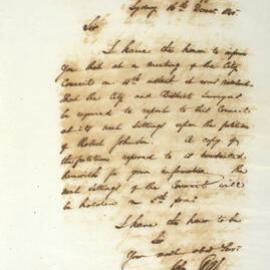 Sydney 16th
Sir
I have the honor to inform
you that at a meeting of the City
Council on
that the City and District Surveyor
be required to report to this Council
at its next sittings upon the petition
of Robert Johnston. A copy of
the petition referred to is
herewith for your information. The
next sittings of the Council will
be holden on 5th
I have the honor to be
Sir
Your most obdt Servt